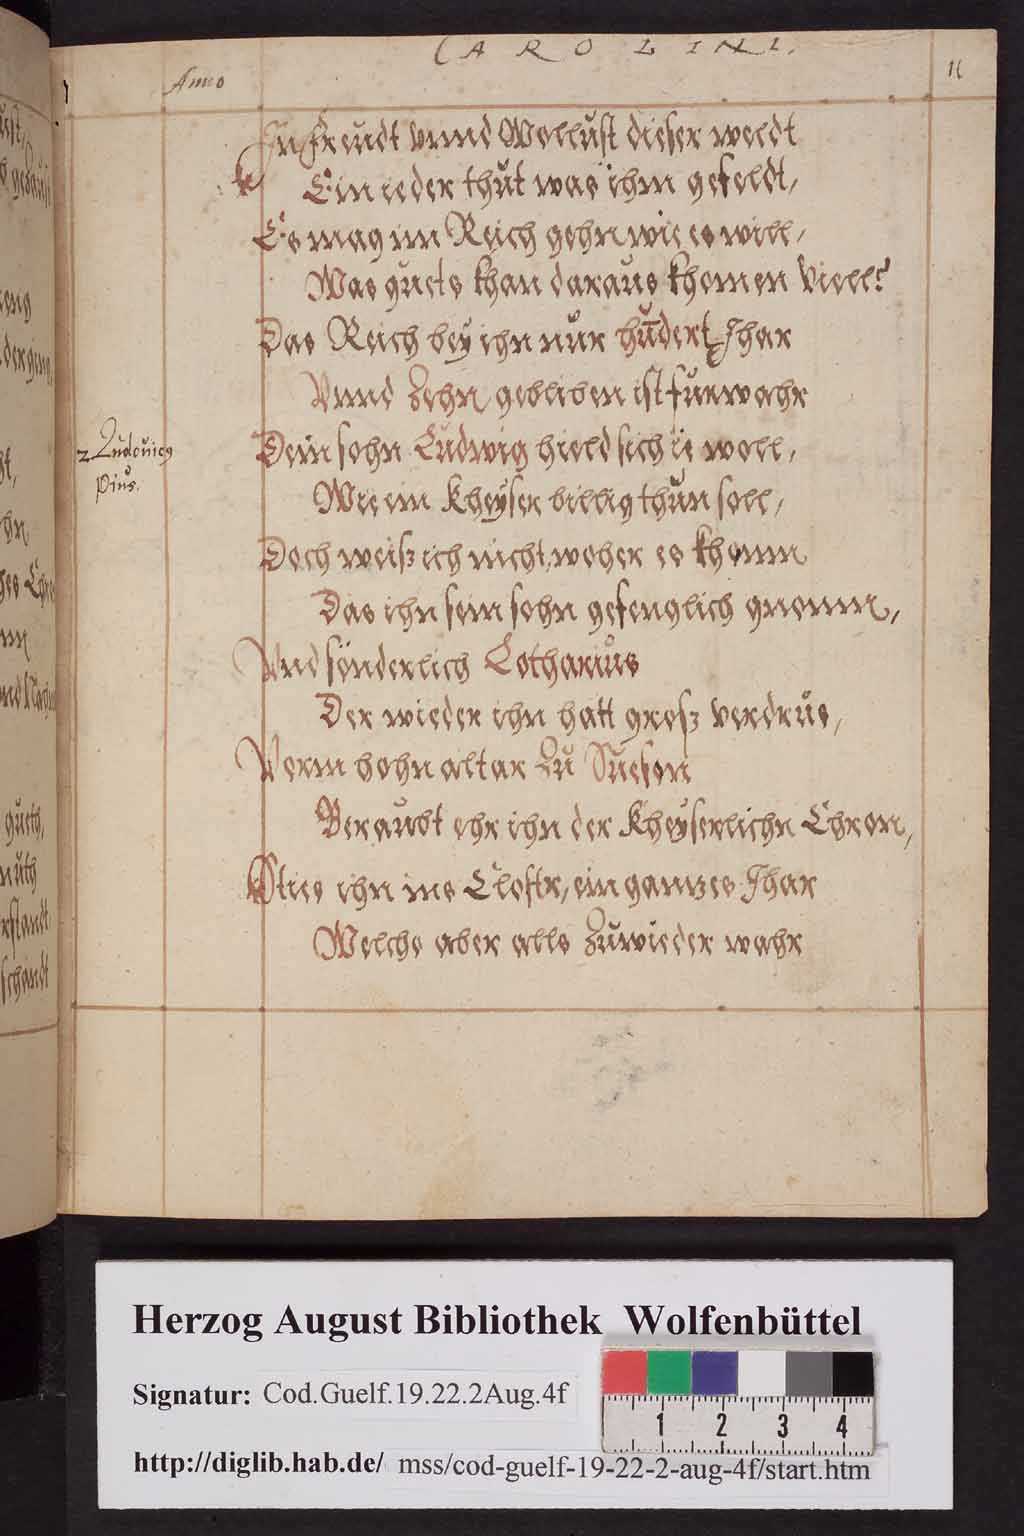 CAROLINI.
Anno
11
In freudt vnnd Wollust dieser weldt
Ein ieder thut was ihm gefeldt,
Es mag im Reich gehn wie es will,
Was guets khan daraus khomen viell?
Das Reich bey ihn nur hundert Jhar
Vnnd Zehn gebliben ist furwahr
2 Ludouicus
Pius.
Dein sohn Ludwig hield sich ie woll,
Wie ein Kheyser billig thun soll,
Doch weiß ich nicht, woher es khomm
Das ihn sein sohn gefenglich gnomm,
Vnd sonderlich Lotharius
Der wieder ihn hatt groß verdrus,
Vorm hohn altar Zu Sueson
Beraubt ehr ihn der Kheyserlichn Chron,
Sties ihn ins Closter, ein ganzes Jhar
Welchs aber alls Zuwieder wahr
Herzog August Bibliothek Wolfenbüttel
Signatur: Cod.Guelf.19.22.2Aug.4f
1 2 3 4
http://diglib.hab.de/ mss/cod-guelf-19-22-2-aug-4f/start.htm